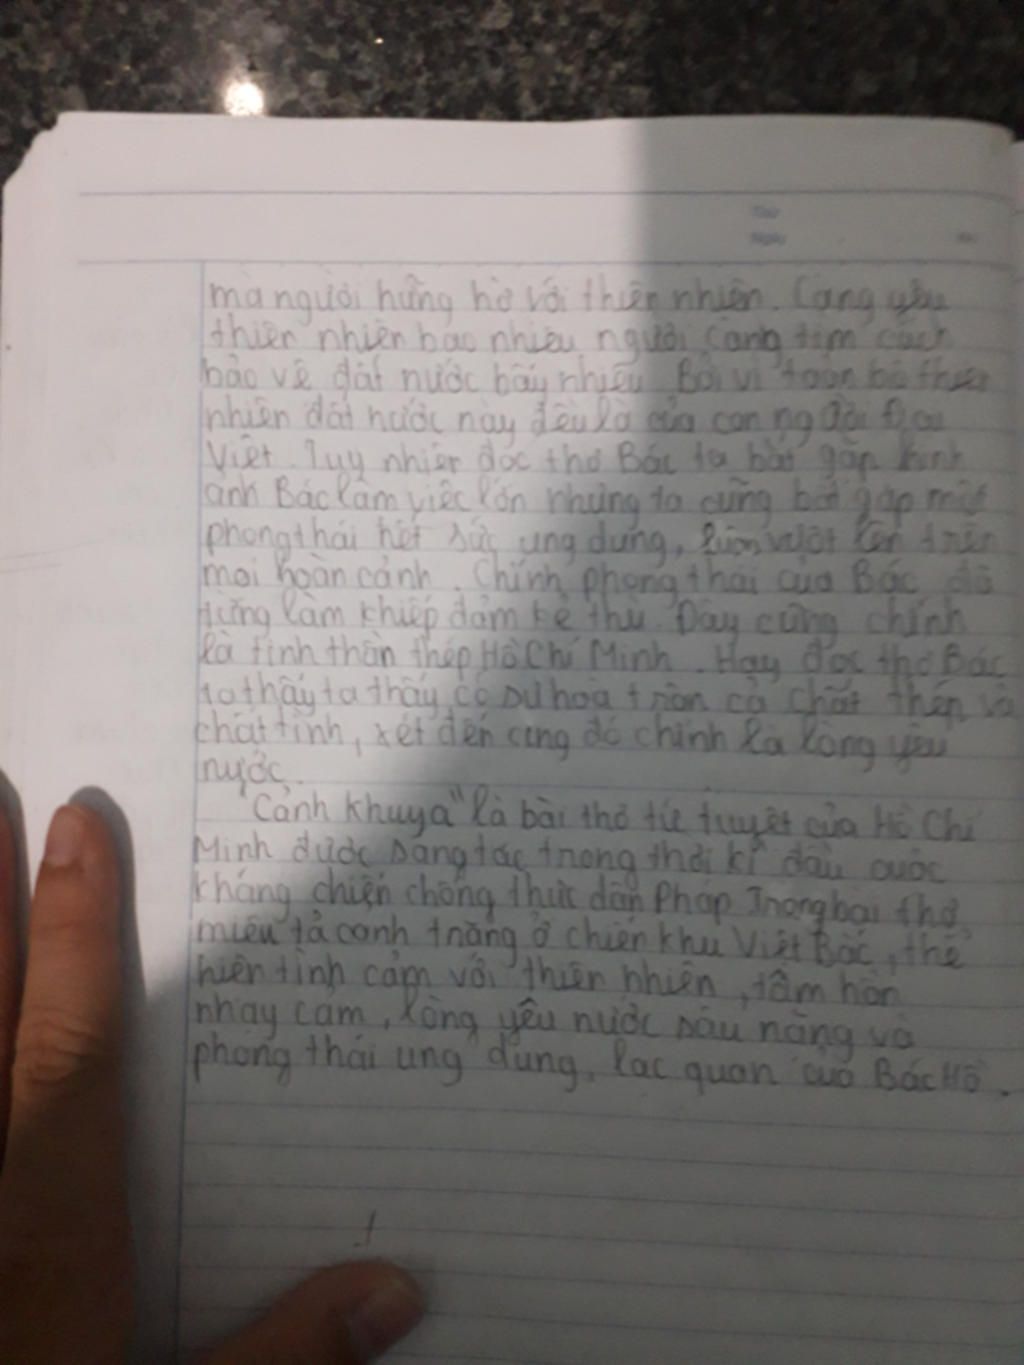 Thứ
Ngày
mà người hững hờ với thiên nhiên. Càng yêu
thiên nhiên bao nhiêu người càng tìm cách
bảo vệ đất nước bấy nhiêu. Bởi vì toàn bộ thiên
nhiên đất nước này đều là của con người Đại
Việt. Tuy nhiên đọc thơ Bác ta bắt gặp hình
ảnh Bác làm việc lớn nhưng ta cũng bắt gặp một
phong thái hết sức ung dung, luôn vượt lên trên
mọi hoàn cảnh. Chính phong thái của Bác đã
từng làm khiếp đảm kẻ thù. Đây cũng chính
là tinh thần thép Hồ Chí Minh. Hay đọc thơ Bác
ta thấy ta thấy có sự hoà tròn cả chất thép và
chất tình, xét đến cùng đó chính là lòng yêu
nước.
"Cảnh khuya" là bài thơ tứ tuyệt của Hồ Chí
Minh được sáng tác trong thời kì đầu cuộc
kháng chiến chống thực dân Pháp Trong bài thơ,
miêu tả cảnh trăng ở chiến khu Việt Bắc, thể
hiện tình cảm với thiên nhiên, tâm hồn
nhạy cảm, lòng yêu nước sâu nặng và
phong thái ung dung, lạc quan của Bác Hồ.